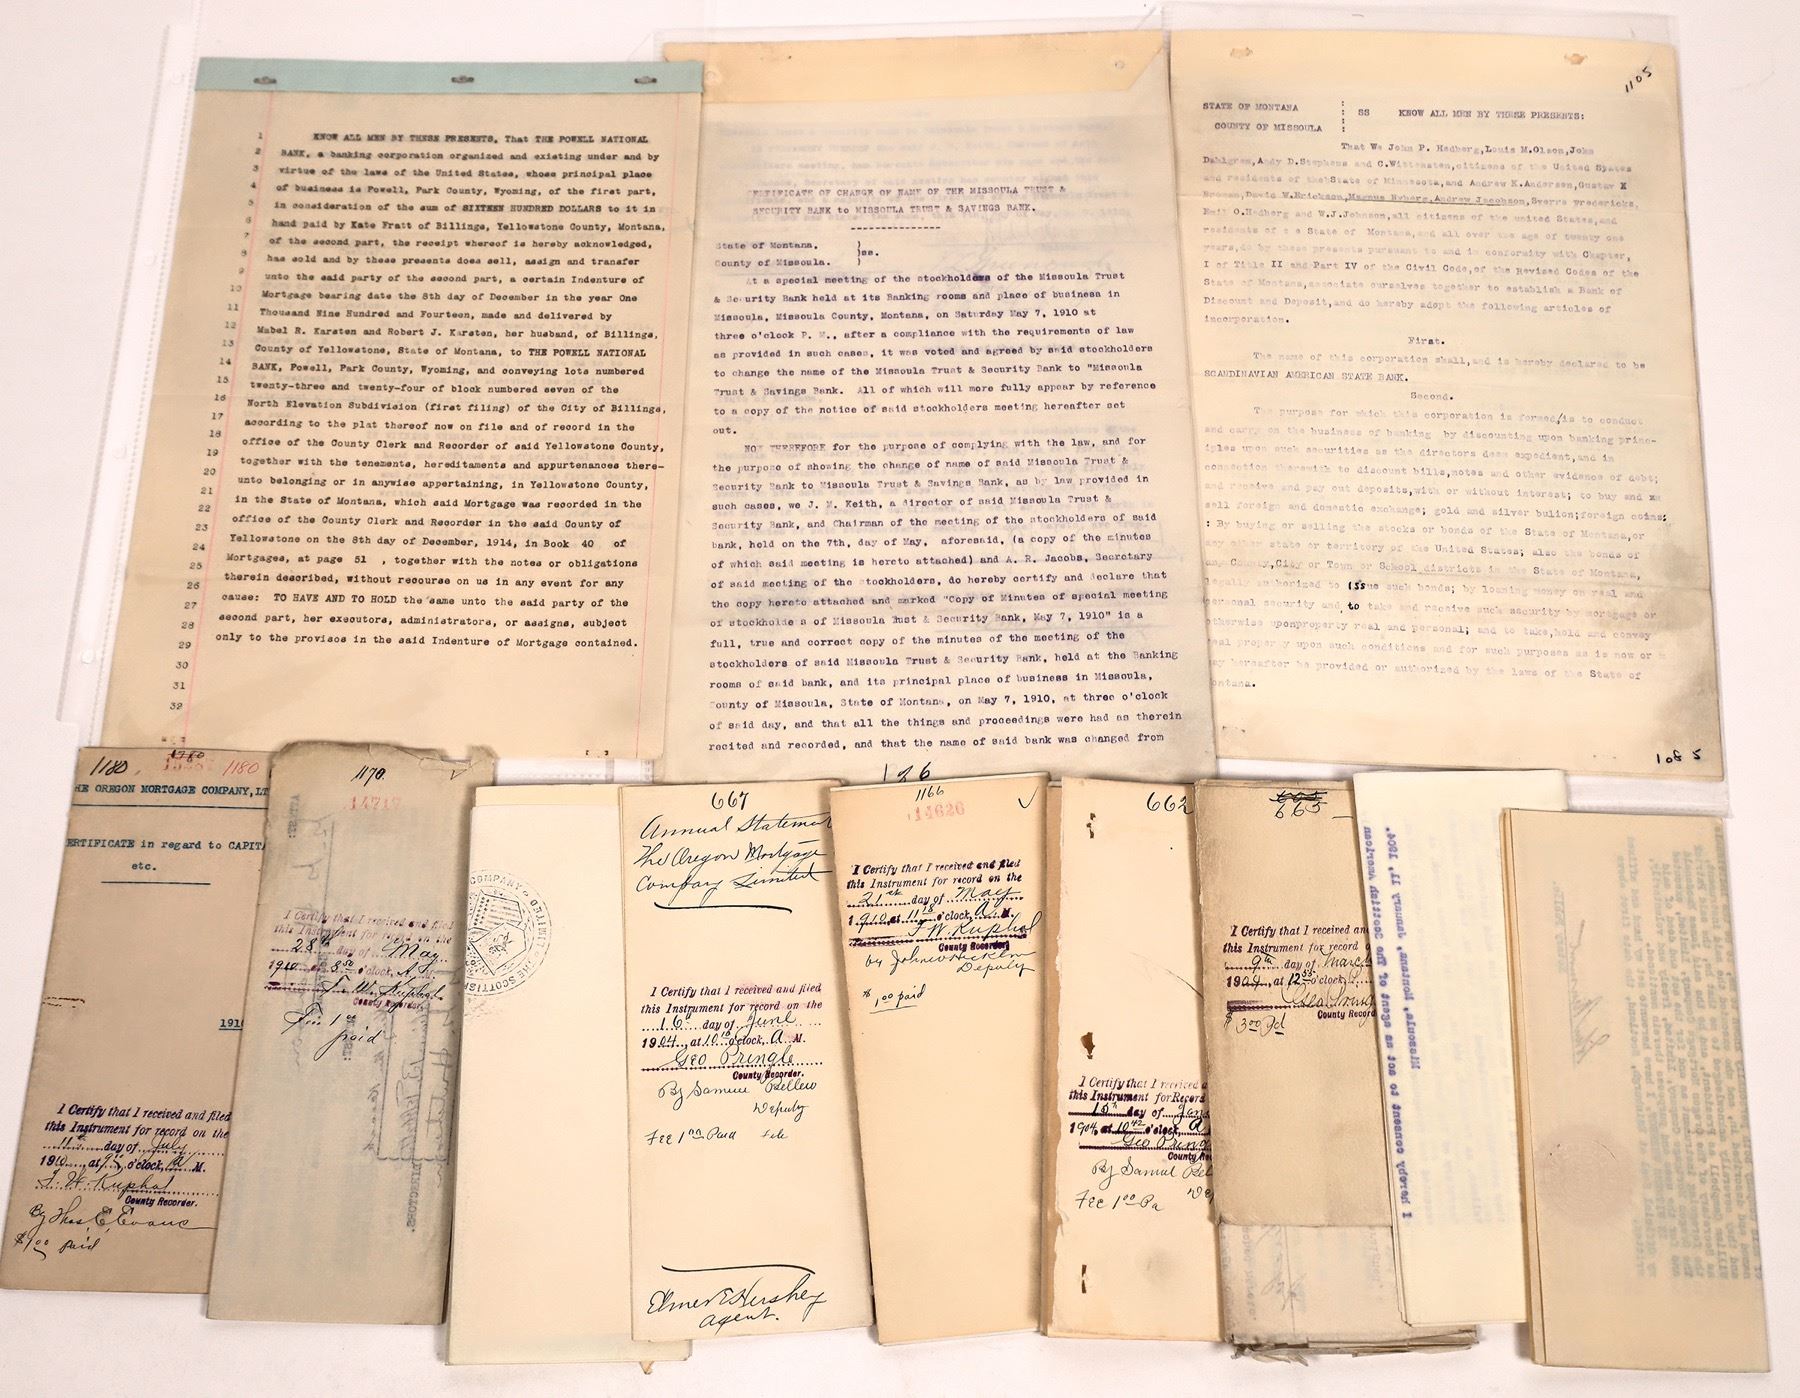 1 KNOW ALL MEN BY THESE PRESENTS, That THE POWELL NATIONAL
2 BANK, a banking corporation organized and existing under and by
3 virtue of the laws of the United States, whose principal place
4 of business is Powell, Park County, Wyoming, of the first part,
5 in consideration of the sum of SIXTEEN HUNDRED DOLLARS to it in
6 hand paid by Kate Fratt of Billings, Yellowstone County, Montana,
7 of the second part, the receipt whereof is hereby acknowledged,
8 has sold and by these presents does sell, assign and transfer
9 unto the said party of the second part, a certain Indenture of
10 Mortgage bearing date the 8th day of December in the year One
11 Thousand Nine Hundred and Fourteen, made and delivered by
12 Mabel R. Karsten and Robert J. Karsten, her husband, of Billings,
13 County of Yellowstone, State of Montana, to THE POWELL NATIONAL
14 BANK, Powell, Park County, Wyoming, and conveying lots numbered
15 twenty-three and twenty-four of block numbered seven of the
16 North Elevation Subdivision (first filing) of the City of Billings,
17 according to the plat thereof now on file and of record in the
18 office of the County Clerk and Recorder of said Yellowstone County,
19 together with the tenements, hereditaments and appurtenances there-
20 unto belonging or in anywise appertaining, in Yellowstone County,
21 in the State of Montana, which said Mortgage was recorded in the
22 office of the County Clerk and Recorder in the said County of
23 Yellowstone on the 8th day of December, 1914, in Book 40 of
24 Mortgages, at page 51 , together with the notes or obligations
25 therein described, without recourse on us in any event for any
26 cause: TO HAVE AND TO HOLD the same unto the said party of the
27 second part, her executors, administrators, or assigns, subject
28 only to the provisos in the said Indenture of Mortgage contained.
29
30
31
32
CERTIFICATE OF CHANGE OF NAME OF THE MISSOULA TRUST &
SECURITY BANK to MISSOULA TRUST & SAVINGS BANK.
State of Montana. )
)ss.
County of Missoula. )
At a special meeting of the stockholders of the Missoula Trust
& Security Bank held at its Banking rooms and place of business in
Missoula, Missoula County, Montana, on Saturday May 7, 1910 at
three o'clock P. M., after a compliance with the requirements of law
as provided in such cases, it was voted and agreed by said stockholders
to change the name of the Missoula Trust & Security Bank to "Missoula
Trust & Savings Bank. All of which will more fully appear by reference
to a copy of the notice of said stockholders meeting hereafter set
out.
NOW THEREFORE for the purpose of complying with the law, and for
the purpose of showing the change of name of said Missoula Trust &
Security Bank to Missoula Trust & Savings Bank, as by law provided in
such cases, we J. M. Keith, a director of said Missoula Trust &
Security Bank, and Chairman of the meeting of the stockholders of said
bank, held on the 7th, day of May, aforesaid, (a copy of the minutes
of which said meeting is hereto attached) and A. R. Jacobs, Secretary
of said meeting of the stockholders, do hereby certify and declare that
the copy hereto attached and marked "Copy of Minutes of special meeting
of stockholde s of Missoula Trust & Security Bank, May 7, 1910" is a
full, true and correct copy of the minutes of the meeting of the
stockholders of said Missoula Trust & Security Bank, held at the Banking
rooms of said bank, and its principal place of business in Missoula,
County of Missoula, State of Montana, on May 7, 1910, at three o'clock
of said day, and that all the things and proceedings were had as therein
recited and recorded, and that the name of said bank was changed from
126
1105
STATE OF MONTANA
SS KNOW ALL MEN BY THESE PRESENTS:
COUNTY OF MISSOULA
That We John P. Hedberg,Louis M.Olson,John
Dahlgren,Andy D.Stephens and C.Wittensten,citizens of the United States
and residents of the State of Minnesota,and Andrew K.Anderson,Gustav X
Broman,David W.Erickson,Magnus Nyberg,Andrew Jacobson,Sverre Fredericks,
Emil O.Hedberg and W.J.Johnson,all citizens of the united States,and
residents of t e State of Montana,and all over the age of twenty one
years,do by these presents pursuant to and in conformity with Chapter,
I of Title II and Part IV of the Civil Code,of the Revised Codes of the
State of Montana,associate ourselves together to establish a Bank of
Discount and Deposit,and do hereby adopt the following articles of
incorporation.
First.
The name of this corporation shall,and is hereby declared to be
SCANDINAVIAN AMERICAN STATE BANK.
Second.
The purpose for which this corporation is formed,is to conduct
and carry on the business of banking by discounting upon banking princ-
iples upon such securities as the directors deem expedient,and in
connection therewith to discount bills,notes and other evidence of debt;
and receive and pay out deposits,with or without interest; to buy and
sell foreign and domestic exchange; gold and silver bulion;foreign coins;
: By buying or selling the stocks or bonds of the State of Montana,or
any other state or territory of the United States; also the bonds of
any County,City or Town or School districts in the State of Montana,
legally authorized to issue such bonds; by loaning money on real and
personal security and to take and receive such security by mortgage or
otherwise uponproperty real and personal; and to take,hold and convey
real property upon such conditions and for such purposes as is now or
may hereafter be provided or authorized by the laws of the State of
Montana.
1180 1180 1180
THE OREGON MORTGAGE COMPANY, LT
CERTIFICATE in regard to CAPITA
etc.
191
I Certify that I received and filed
this Instrument for record on the
11th day of July
1910, at 9 o'clock, A M.
F. W. Kuphal
County Recorder.
By Thos. E. Evans
$1.00 paid
1170
14717
I Certify that I received and filed
this Instrument for record on the
28th day of May
1910 at 8 50 o'clock, A
F. W. Kuphal
County Recorder.
Fee 1 00
paid
COMPANY
LIMITED
THE SCOTTISH
667
Annual Statement
The Oregon Mortgage
Company Limited
I Certify that I received and filed
this Instrument for record on the
16 day of June
1904, at 10 10 o'clock, A M.
Geo Pringle
County Recorder.
By Samuel Bellew
Deputy
Fee 1 00 Paid
Elmer E Hershey
agent.
1166
14626
I Certify that I received and filed
this Instrument for record on the
21st day of May
1910 at 11 18 o'clock, A M.
F. W. Kuphal
County Recorder
Deputy
$1 00 paid
662
I Certify that I received a
this Instrument for Record
15th day of Jan
1904, at 10 42 o'clock, A
Geo Pringle
County Re
By Samuel Bel
Fee 1 00 Pa
665
I Certify that I received an
this Instrument for record o
9th day of March
190 , at 12 55 o'clock, P
Geo Pringl
County Record
$3 00 Pd
I hereby consent to act as agent of The Scottish American
Missoula, Montana, January 11, 1904.